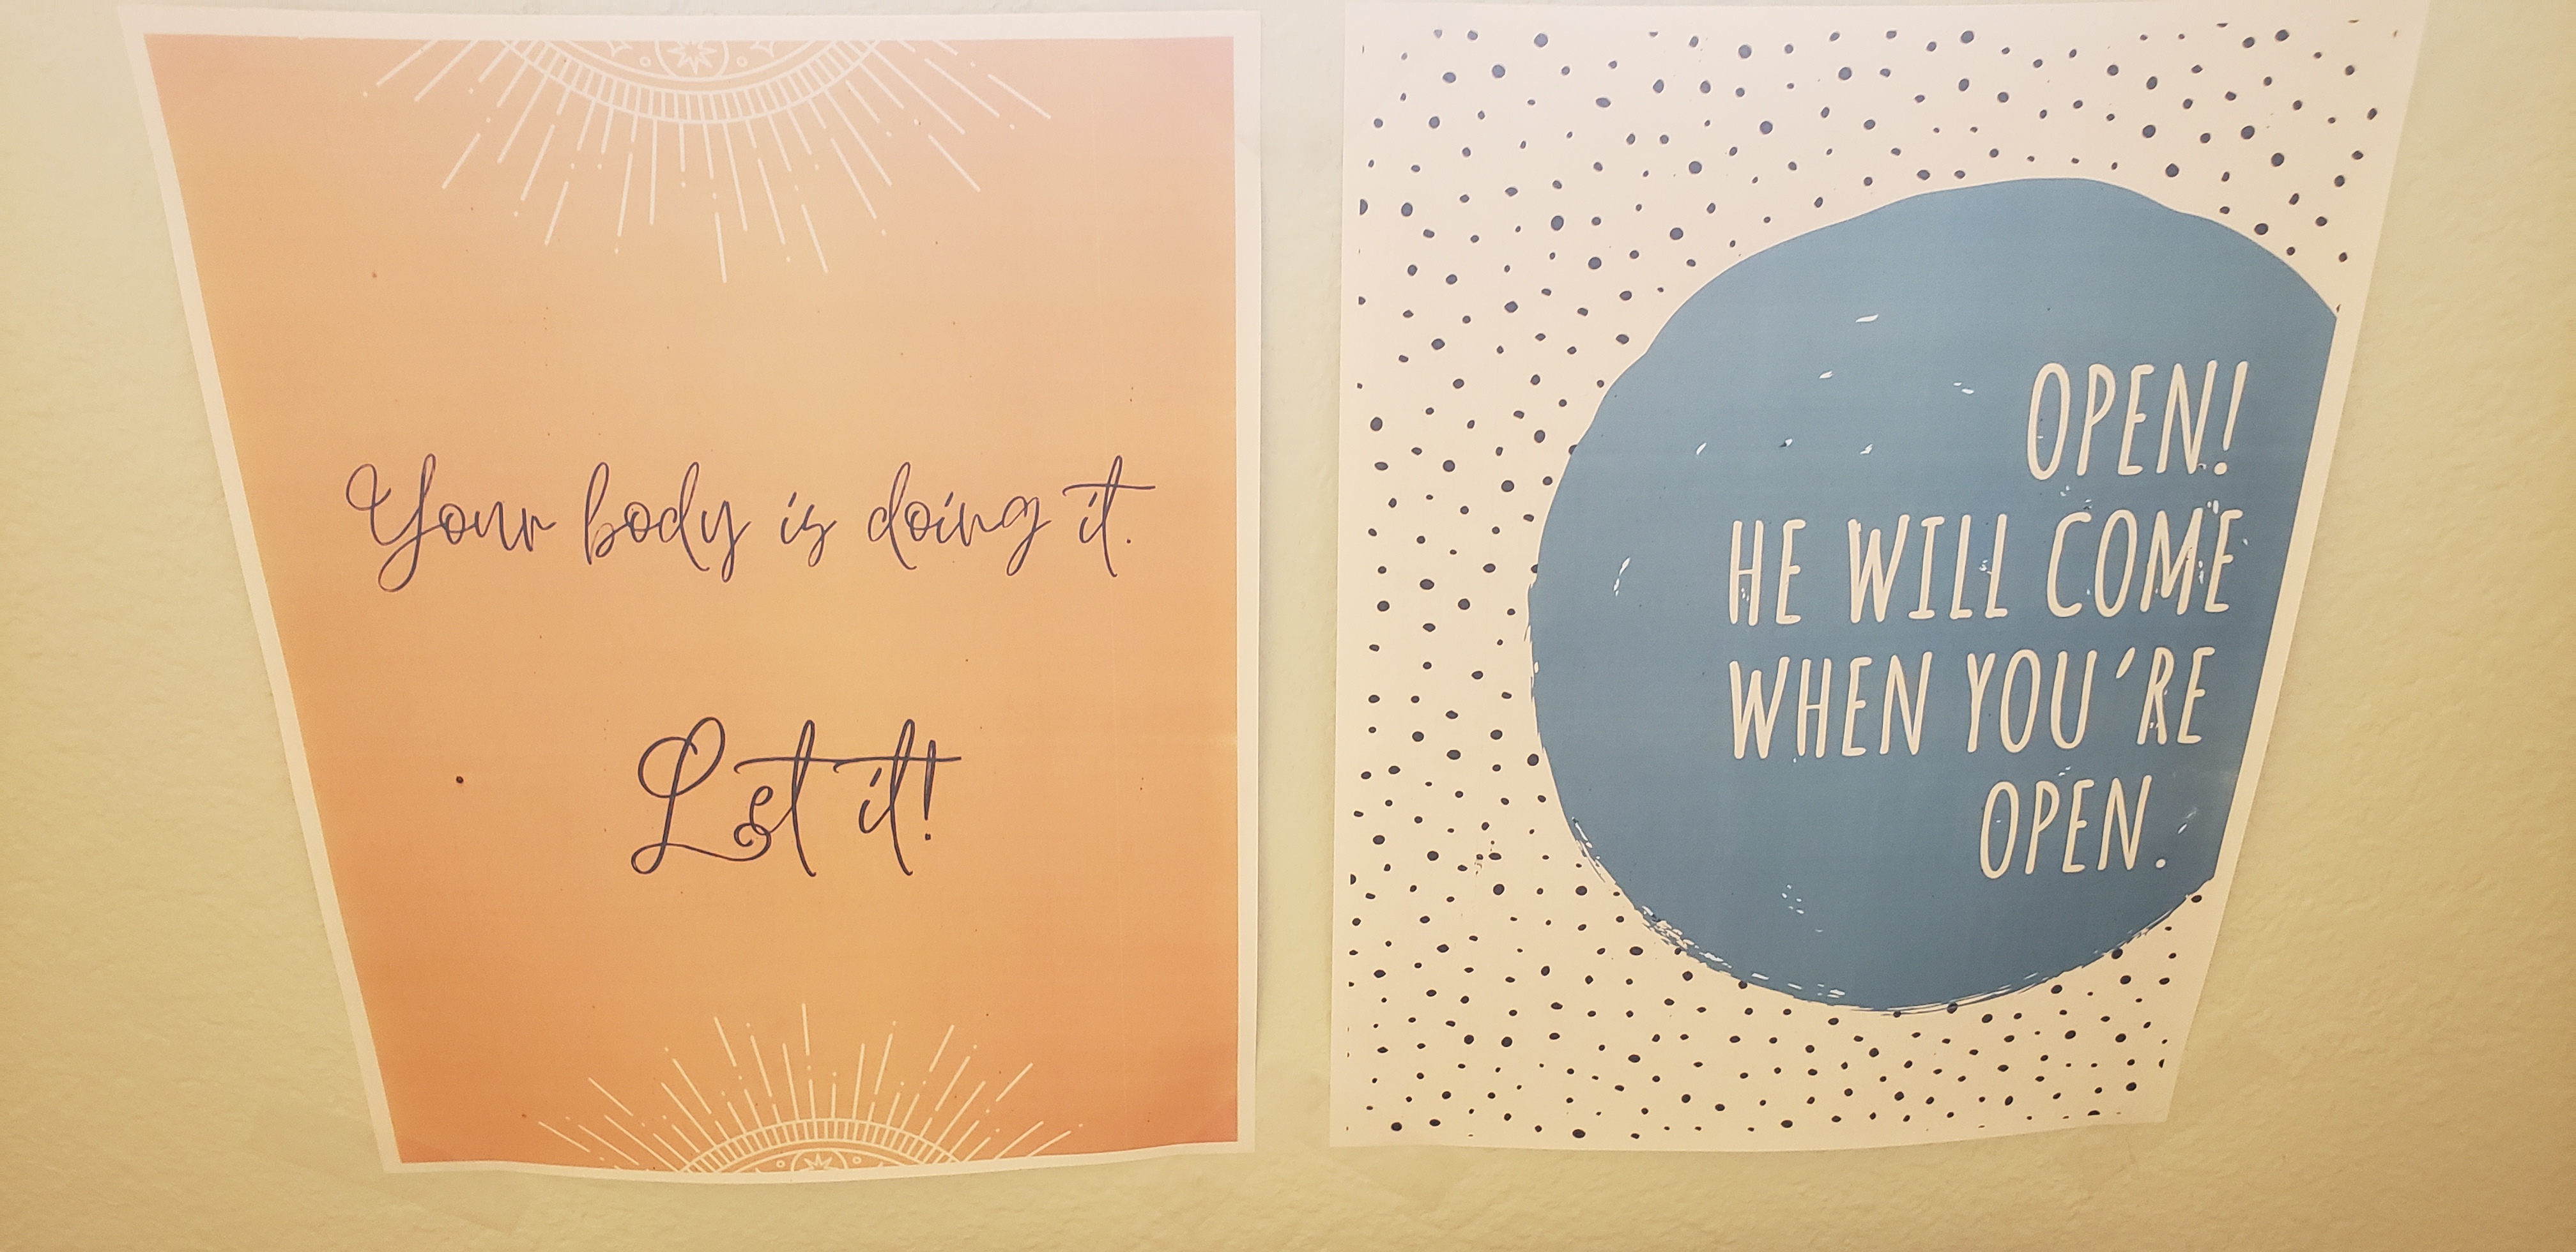 Your body is doing it.
Let it!
OPEN!
HE WILL COME
WHEN YOU'RE
OPEN.